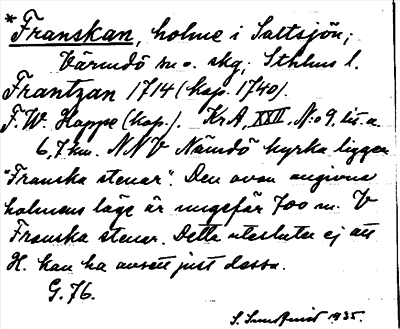 *Franskan, holme i Saltsjön;
Värmdö m. o. skg; Sthlms l.
Frantzan 1714 (kop. 1740).
F. W. Hoppe (kop.). KrA, XXII, N:o 9, lit. a.
6,7 km. NNV Nämdö kyrka ligger
"Franska stenar". Den ovan angivna
holmens läge är ungefär 700 m. V
Franska stenar. Detta utesluter ej att
H. kan ha avsett just dessa.
G. 76.
S. 1935.